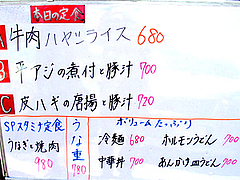 本日の定食
A 牛肉ハヤシライス 680
B 平アジの煮付と豚汁 700
C 皮ハギの唐揚と豚汁 720
SPスタミナ定食
うなぎと焼肉
980
うな重
780
ボリュームたっぷり
冷麺 680 ホルモンうどん 700
中華丼 700 あんかけ皿うどん 700